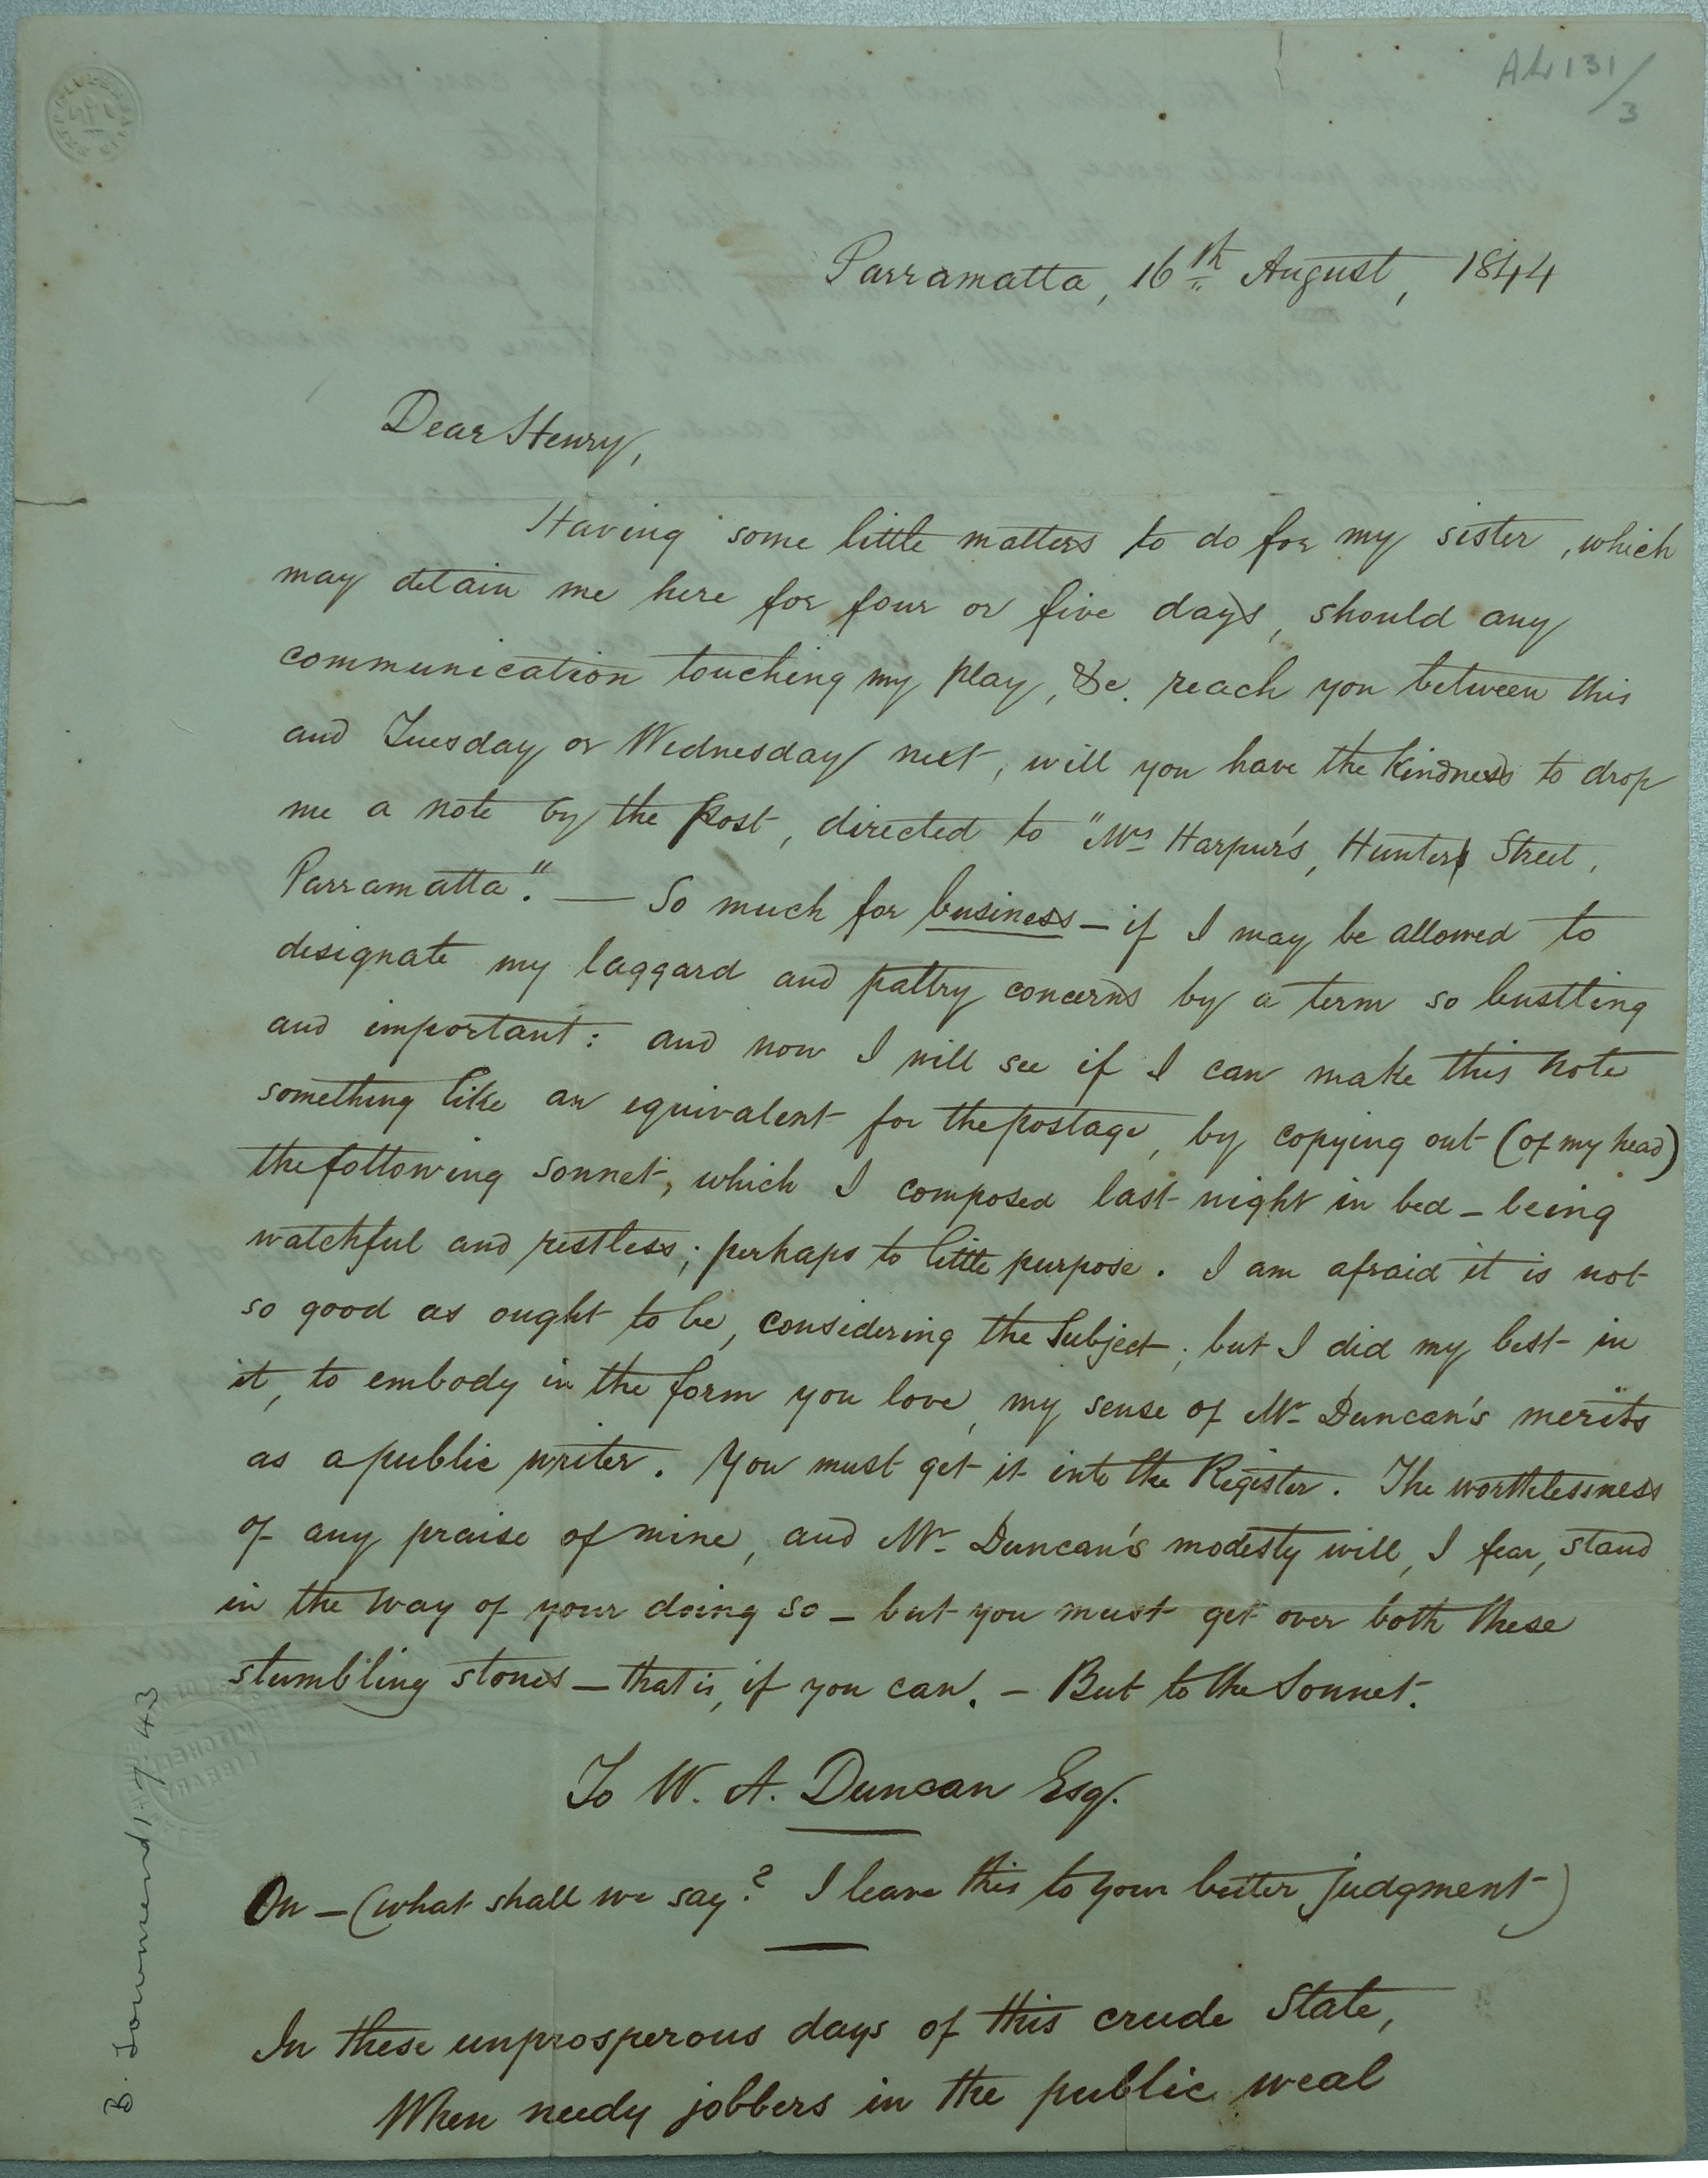 AL 131/3
Parramatta, 16th August, 1844
Dear Henry,
Having some little matters to do for my sister, which
may detain me here for four or five days, should any
communication touching my play, &c. reach you between this
and Tuesday or Wednesday next, will you have the kindness to drop
me a note by the Post, directed to "Mrs Harpur's, Hunter Street,
Parramatta." — So much for business — if I may be allowed to
designate my laggard and paltry concerns by a term so bustling
and important: and now I will see if I can make this note
something like an equivalent for the postage, by copying out (of my head)
the following sonnet, which I composed last night in bed — being
watchful and restless; perhaps to little purpose. I am afraid it is not
so good as ought to be, considering the Subject; but I did my best in
it, to embody in the form you love, my sense of Mr Duncan's merits
as a public writer. You must get it into the Register. The worthlessness
of any praise of mine, and Mr Duncan's modesty will, I fear, stand
in the way of your doing so — but you must get over both these
stumbling stones — that is, if you can. — But to the Sonnet.
To W. A. Duncan Esq.
On — (what shall we say? I leave this to your better judgment)
In these unprosperous days of this crude State,
When needy jobbers in the public weal
B. Townsend 1.7.43